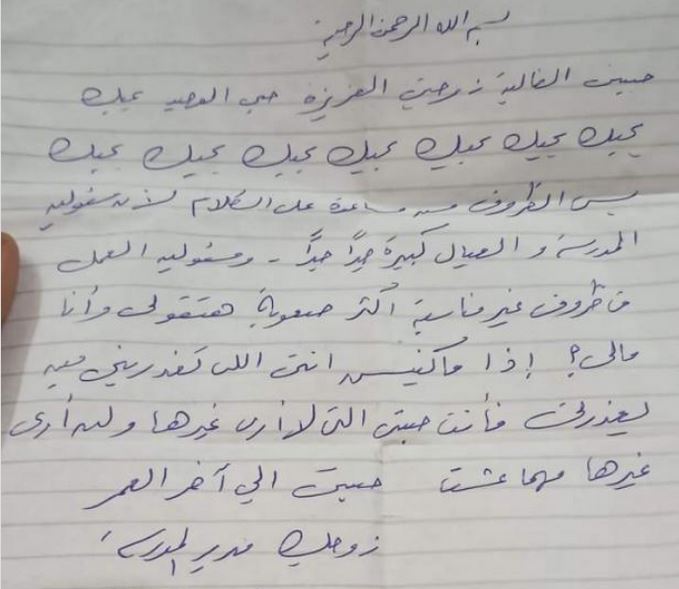 بسم الله الرحمن الرحيم
حبيبتي الغالية زوجتي العزيزة حبي الوحيد بحبك
بحبك بحبك بحبك بحبك بحبك بحبك بحبك
بس الظروف مش مساعدة على الكلام لأن مسئولية
المدرسة و العيال كبيرة جدًا جدًا - ومسئولية العمل
في ظروف غير مناسبة أكثر صعوبة هتقولي وأنا
مالي؟ إذا ماكنتيش انتى اللى تعذريني مين
يعذرني فأنت حبيبتي التي لا أرى غيرها ولن أرى
غيرها مهما عشت حبيبتي الي آخر العمر
زوجك مدير المدرسة